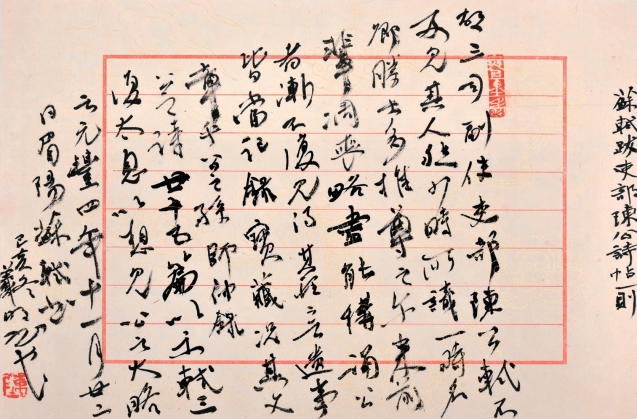 蘇軾跋吏部陳公詩帖一則
故三司副使吏部陳公軾不
及見其人然少時所識一時名
卿勝士多推尊之尔来前
輩凋喪略盡能稱誦公
者漸不復見得其緒言遺事
皆當記錄寶藏况其文
章乎公之孫師仲錄
公之詩廿五篇以示軾三
復太息以想見公之大略
云元豐四年十一月廿二
日眉陽蘇軾書
己亥冬